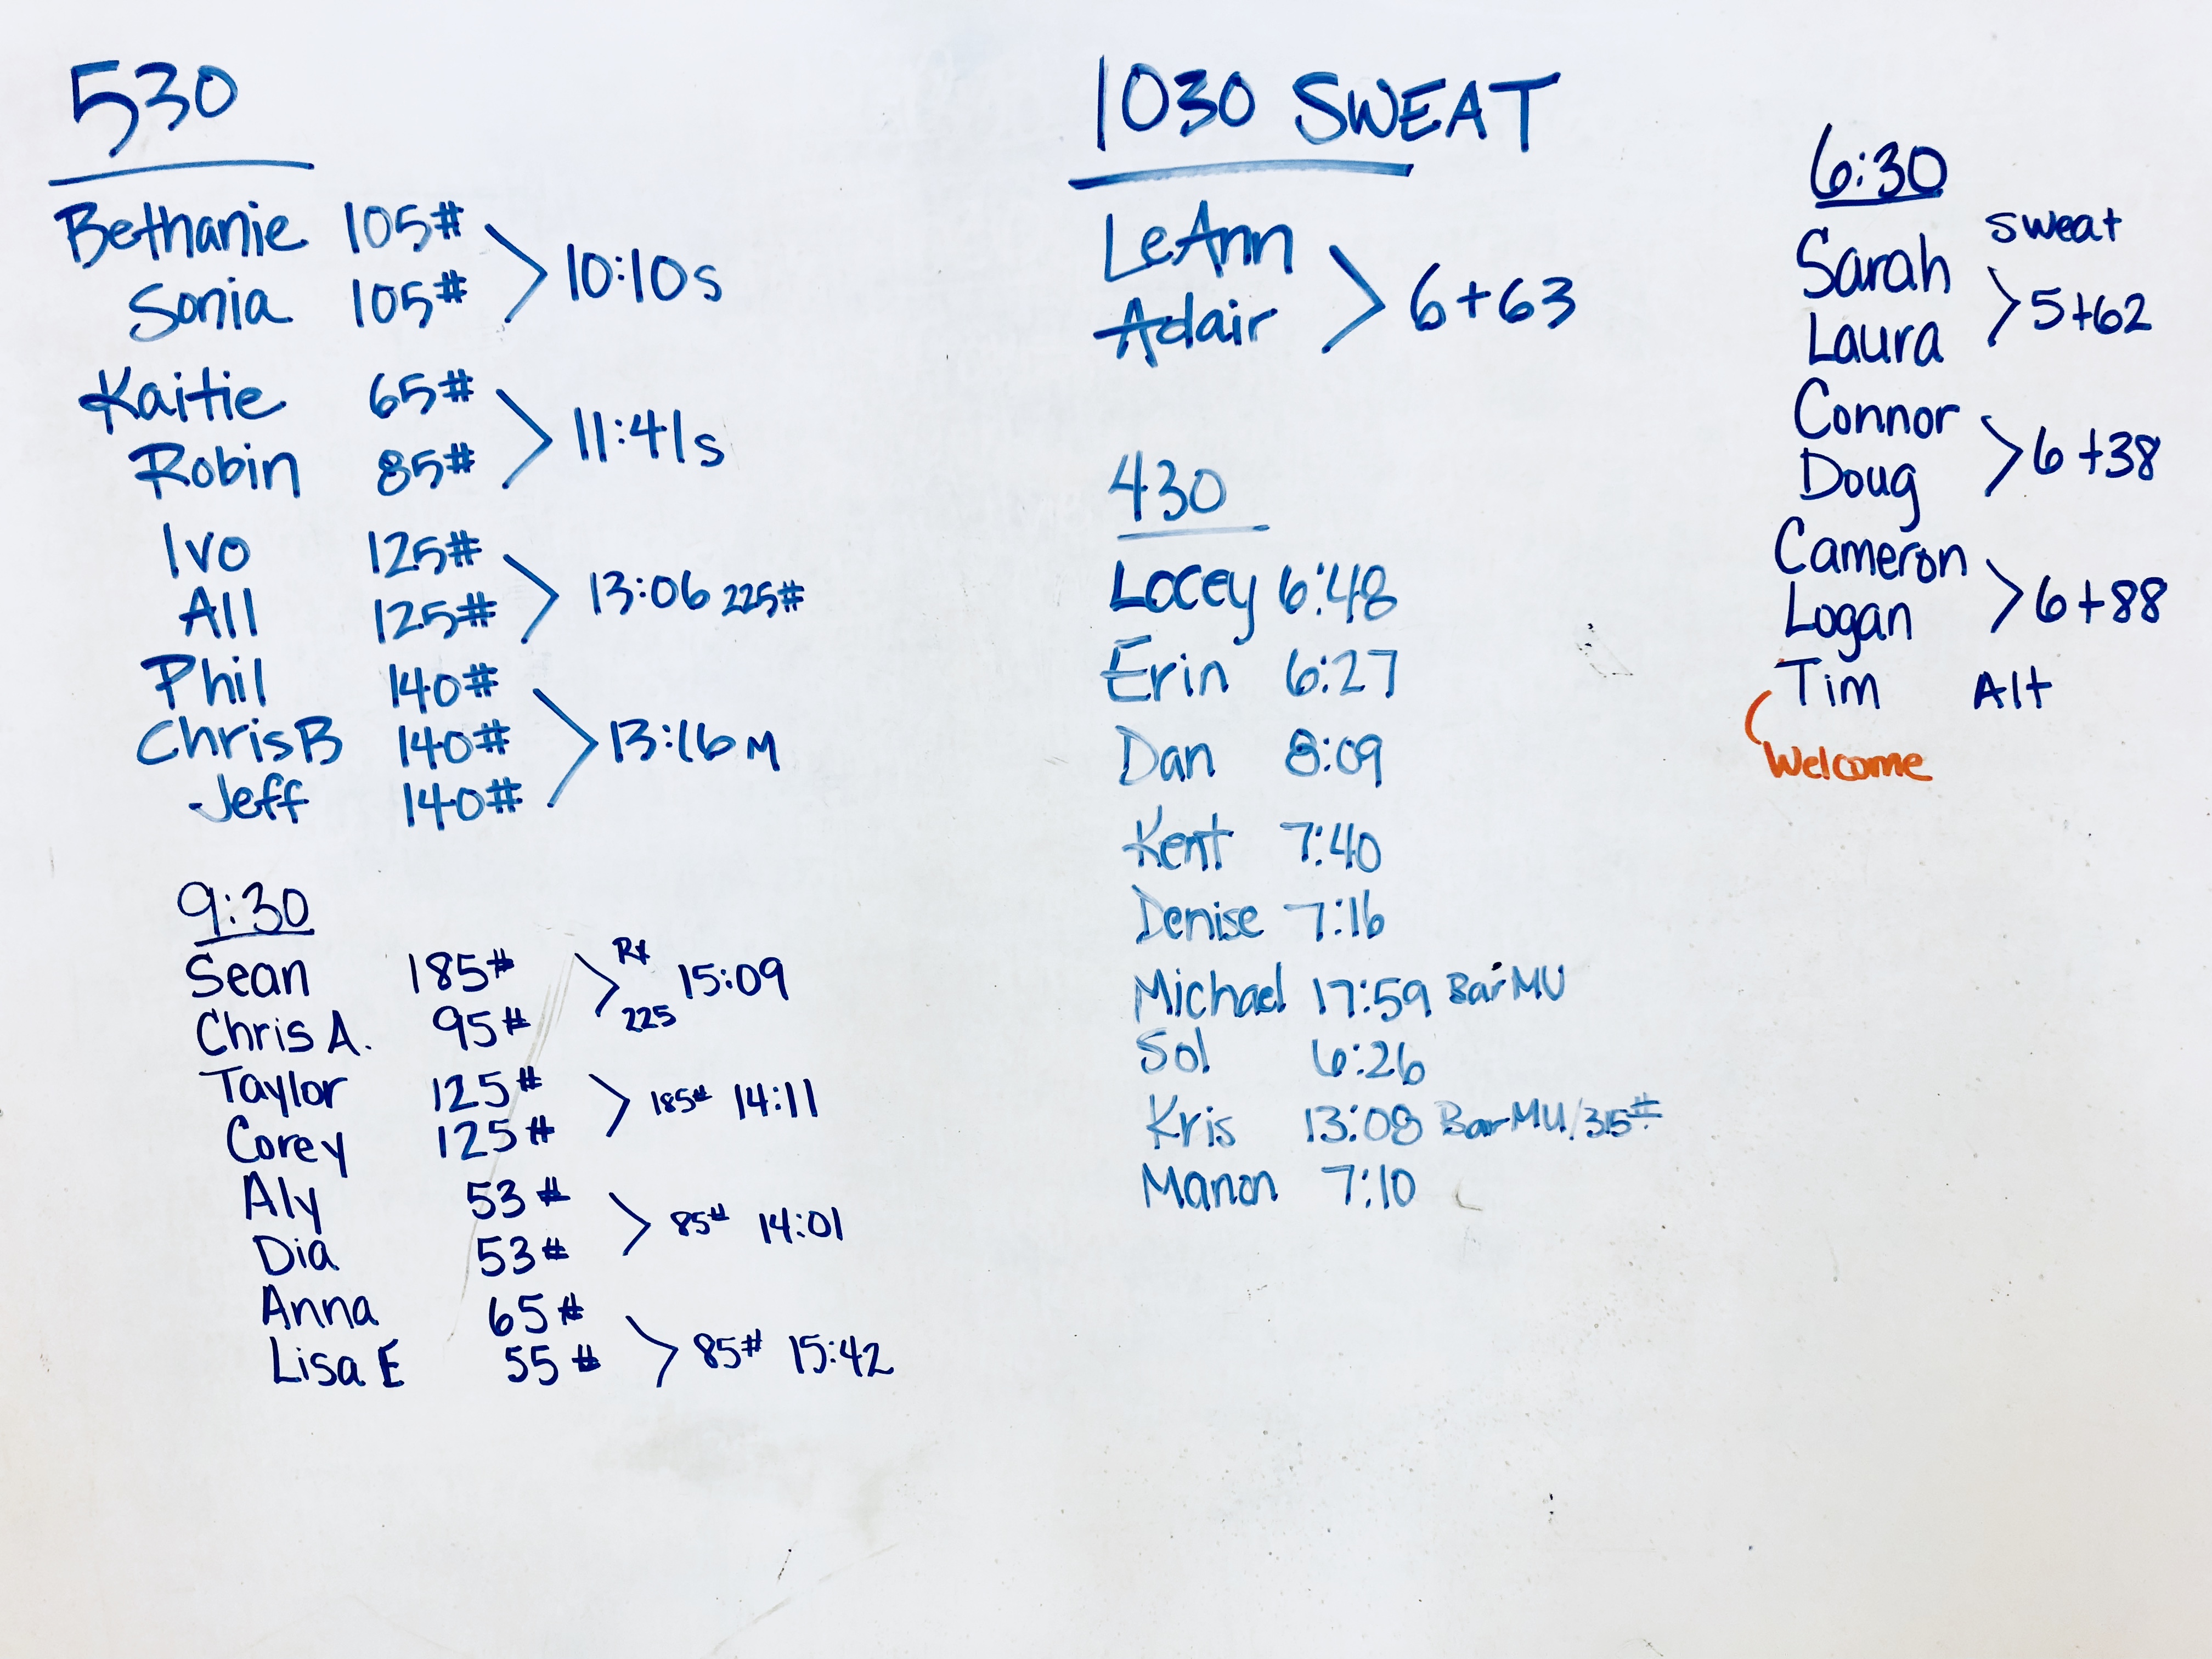 530
Bethanie 105#
Sonia 105#
> 10:10s
Kaitie 65#
Robin 85#
> 11:41s
Ivo 125#
All 125#
> 13:06 225#
Phil 140#
Chris B 140#
Jeff 140#
> 13:16 M
9:30
Sean 185#
Chris A. 95#
> Rx 225 15:09
Taylor 125#
Corey 125#
> 185# 14:11
Aly 53#
Dia 53#
> 85# 14:01
Anna 65#
Lisa E 55#
> 85# 15:42
1030 SWEAT
LeAnn
Adair
> 6+63
430
Locey 6:48
Erin 6:27
Dan 8:09
Kent 7:40
Denise 7:16
Michael 17:59 Bar MU
Sol 6:26
Kris 13:08 Bar MU/315#
Manon 7:10
6:30
sweat
Sarah
Laura
> 5+62
Connor
Doug
> 6+38
Cameron
Logan
> 6+88
Tim Alt
Welcome